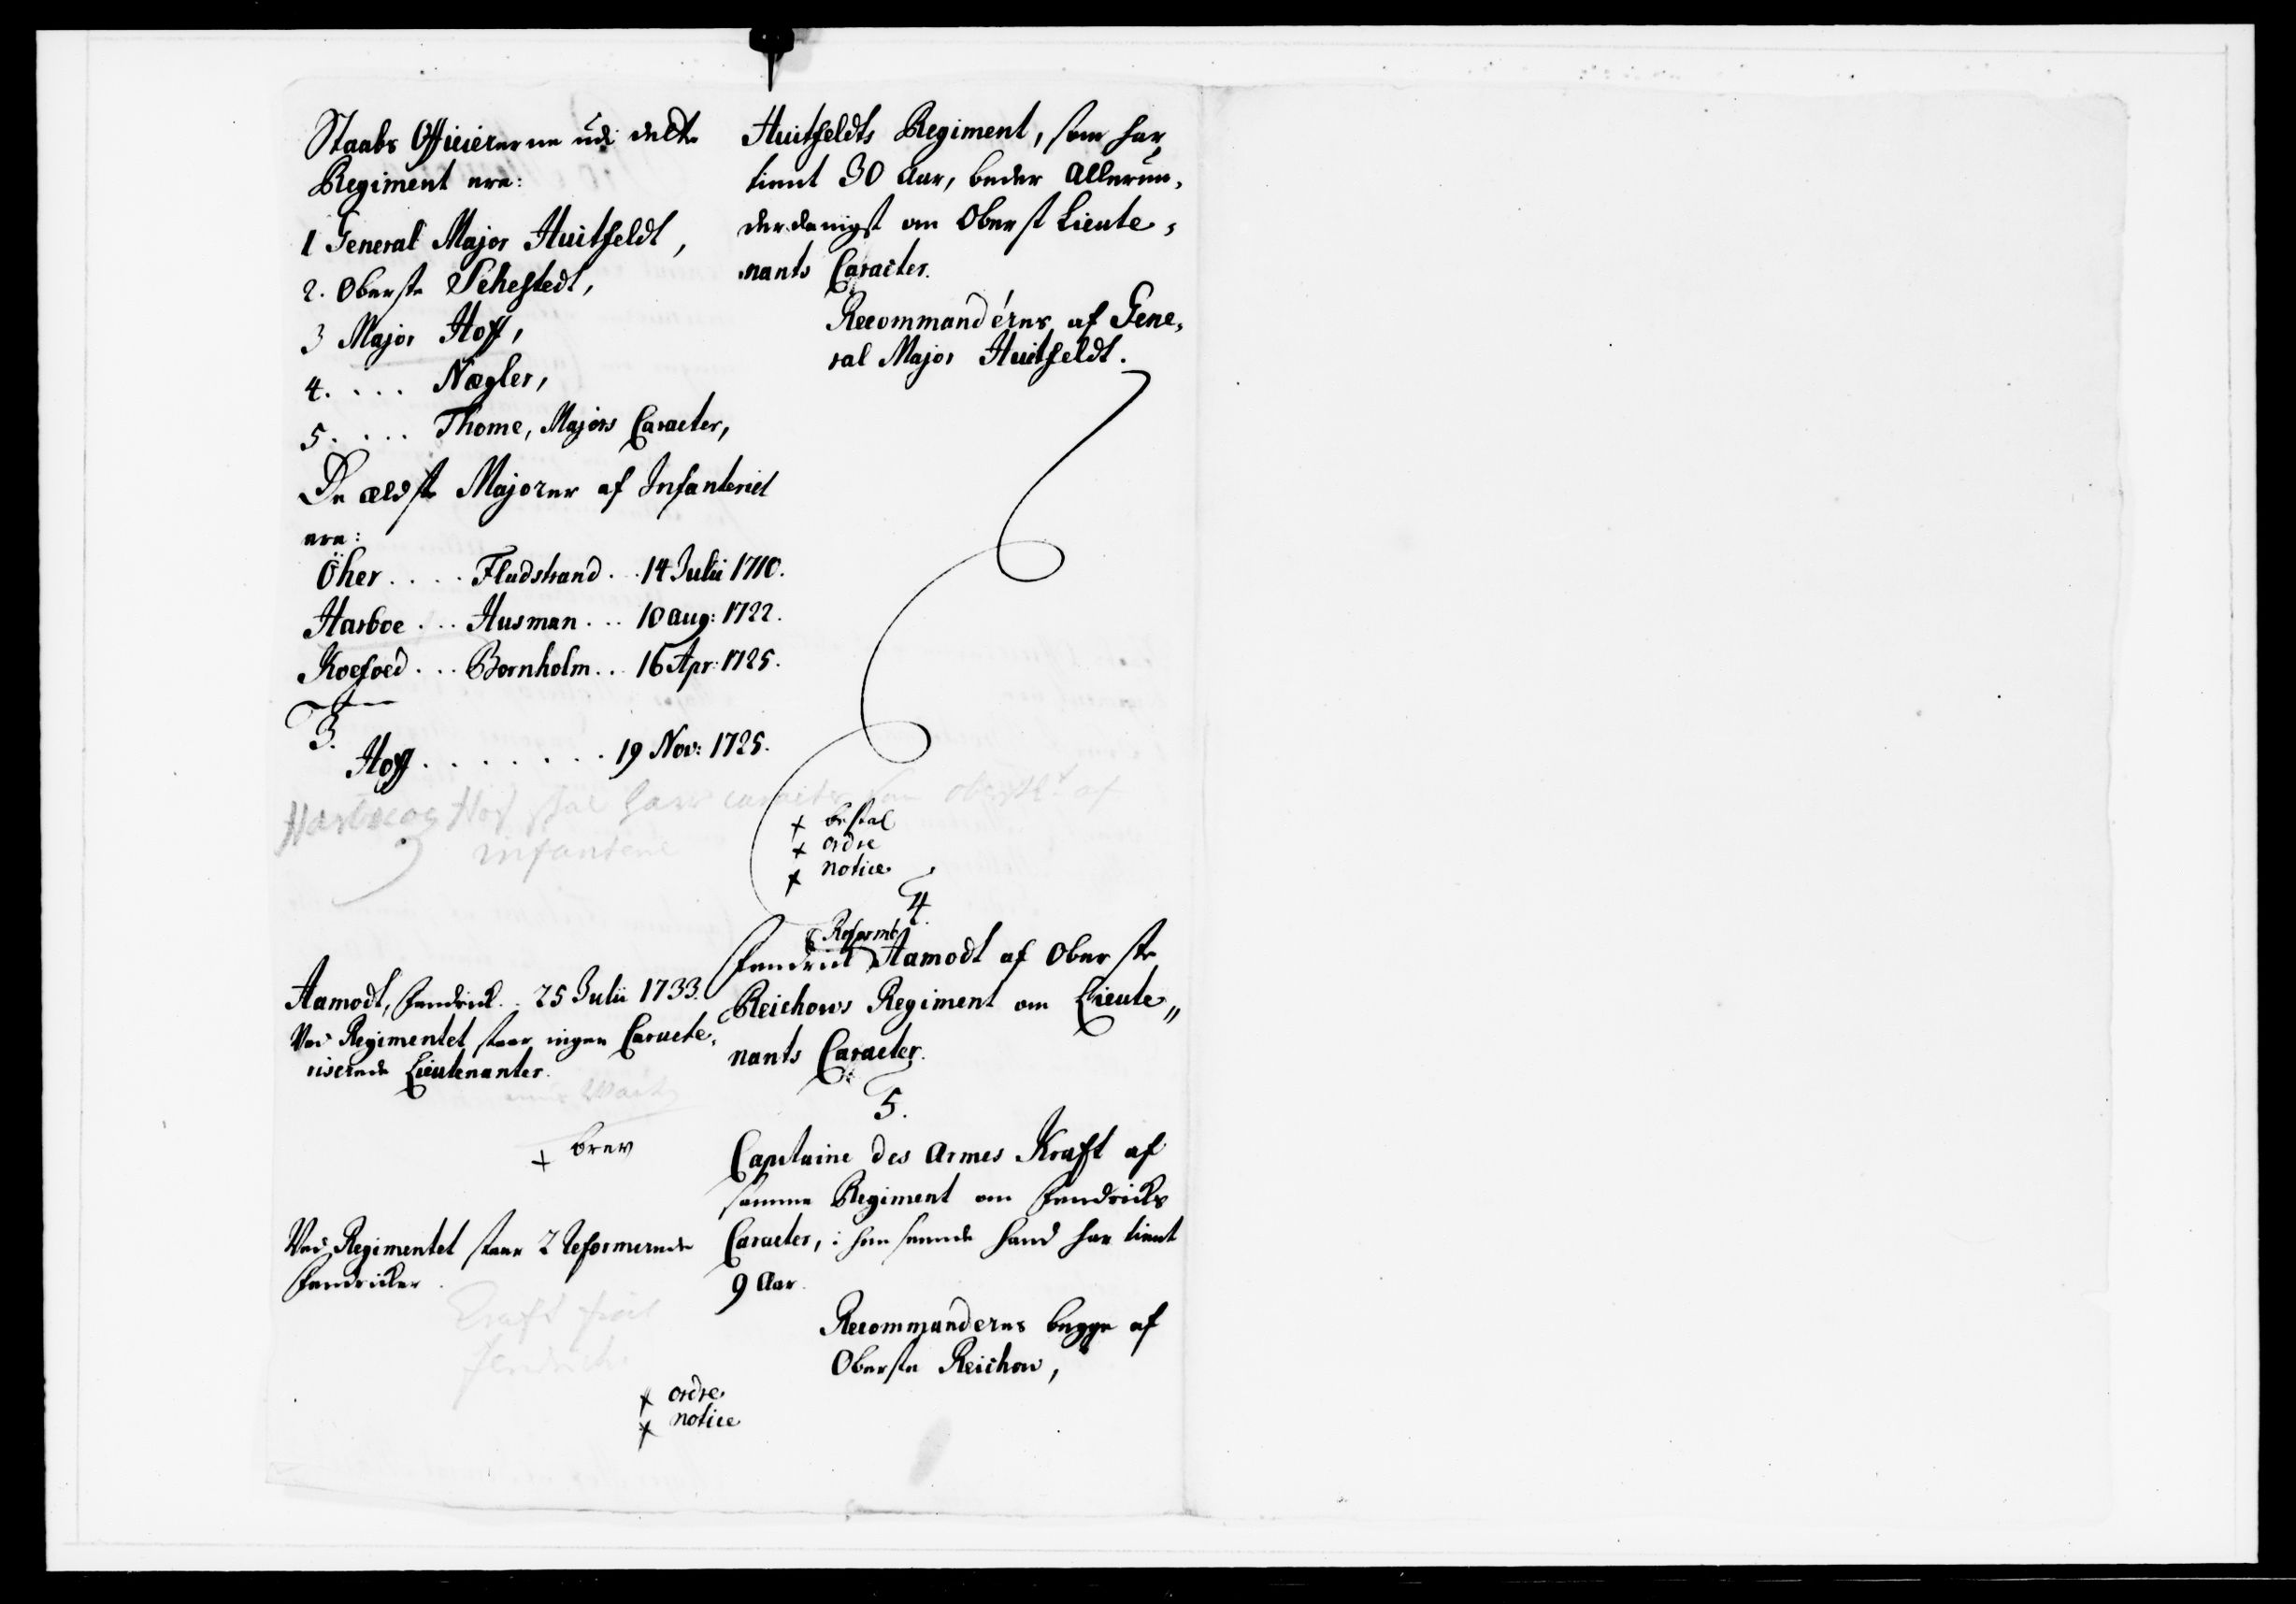 Staabs Officiererne udi dette
Regiment ere:
1 General Major Huitfeldt,
2. Oberste Sehestedt,
3 Major Hoff,
4. . . . Nægler,
5. . . . Thome, Majors Caracter,
De ældste Majorer af Infanteriet
ere:
Öher . . . . Fladstrand . . 14 Julii 1710.
Harboe . . . Husman . . . 10 aug: 1722.
Koefoed . . . Bornholm . . 16 Apr: 1725.
3.
Hoff . . . . . . . . 19 Nov: 1725.
Harboe og Hof skal have caracter som oberstLt af
infanterie
Aamodt, Fendrick . . 25 Julii 1733.
Ved Regimentet staar ingen Caracte,
riserede Lieutenanter.
+ brev
Ved Regimentet staar 2 Reformerede
Fendricker.
Kraft
fendrich
+ ordre
+ notice
Huitfeldts Regiment, som har
tient 30 Aar, beder Allerun,
derdanigst om Oberst Lieute,
nants Caracter.
Recommanderes af Gene,
ral Major Huitfeldt.
+ bestal
+ ordre
+ notice
4.
Reformt
Fendrick Aamodt af Oberste
Reichows Regiment om Lieute„
nants Caracter.
5.
Capitaine des Armes Kraft af
samme Regiment om Fendricks
Caracter, i henseende hand har tient
9 Aar.
Recommanderes begge af
Oberste Reichow,